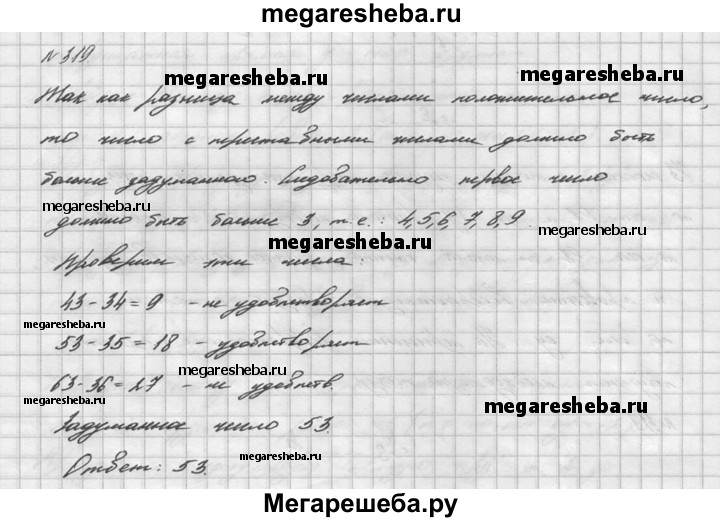 megaresheba.ru
№ 319
megaresheba.ru megaresheba.ru
Так как разница между числами положительное число,
то число с переставными числами должно быть
больше задуманного. Следовательно первое число
megaresheba.ru
должно быть больше 3, т.е.: 4,5,6,7,8,9.
megaresheba.ru megaresheba.ru
Проверим эти числа:
43-34=9 - не удовлетворяет
megaresheba.ru
53-35=18 - удовлетворяет
megaresheba.ru
63-36=27 - не удовлетв.
megaresheba.ru megaresheba.ru
Задуманное число 53.
megaresheba.ru
Ответ: 53.
Мегарешеба.ру